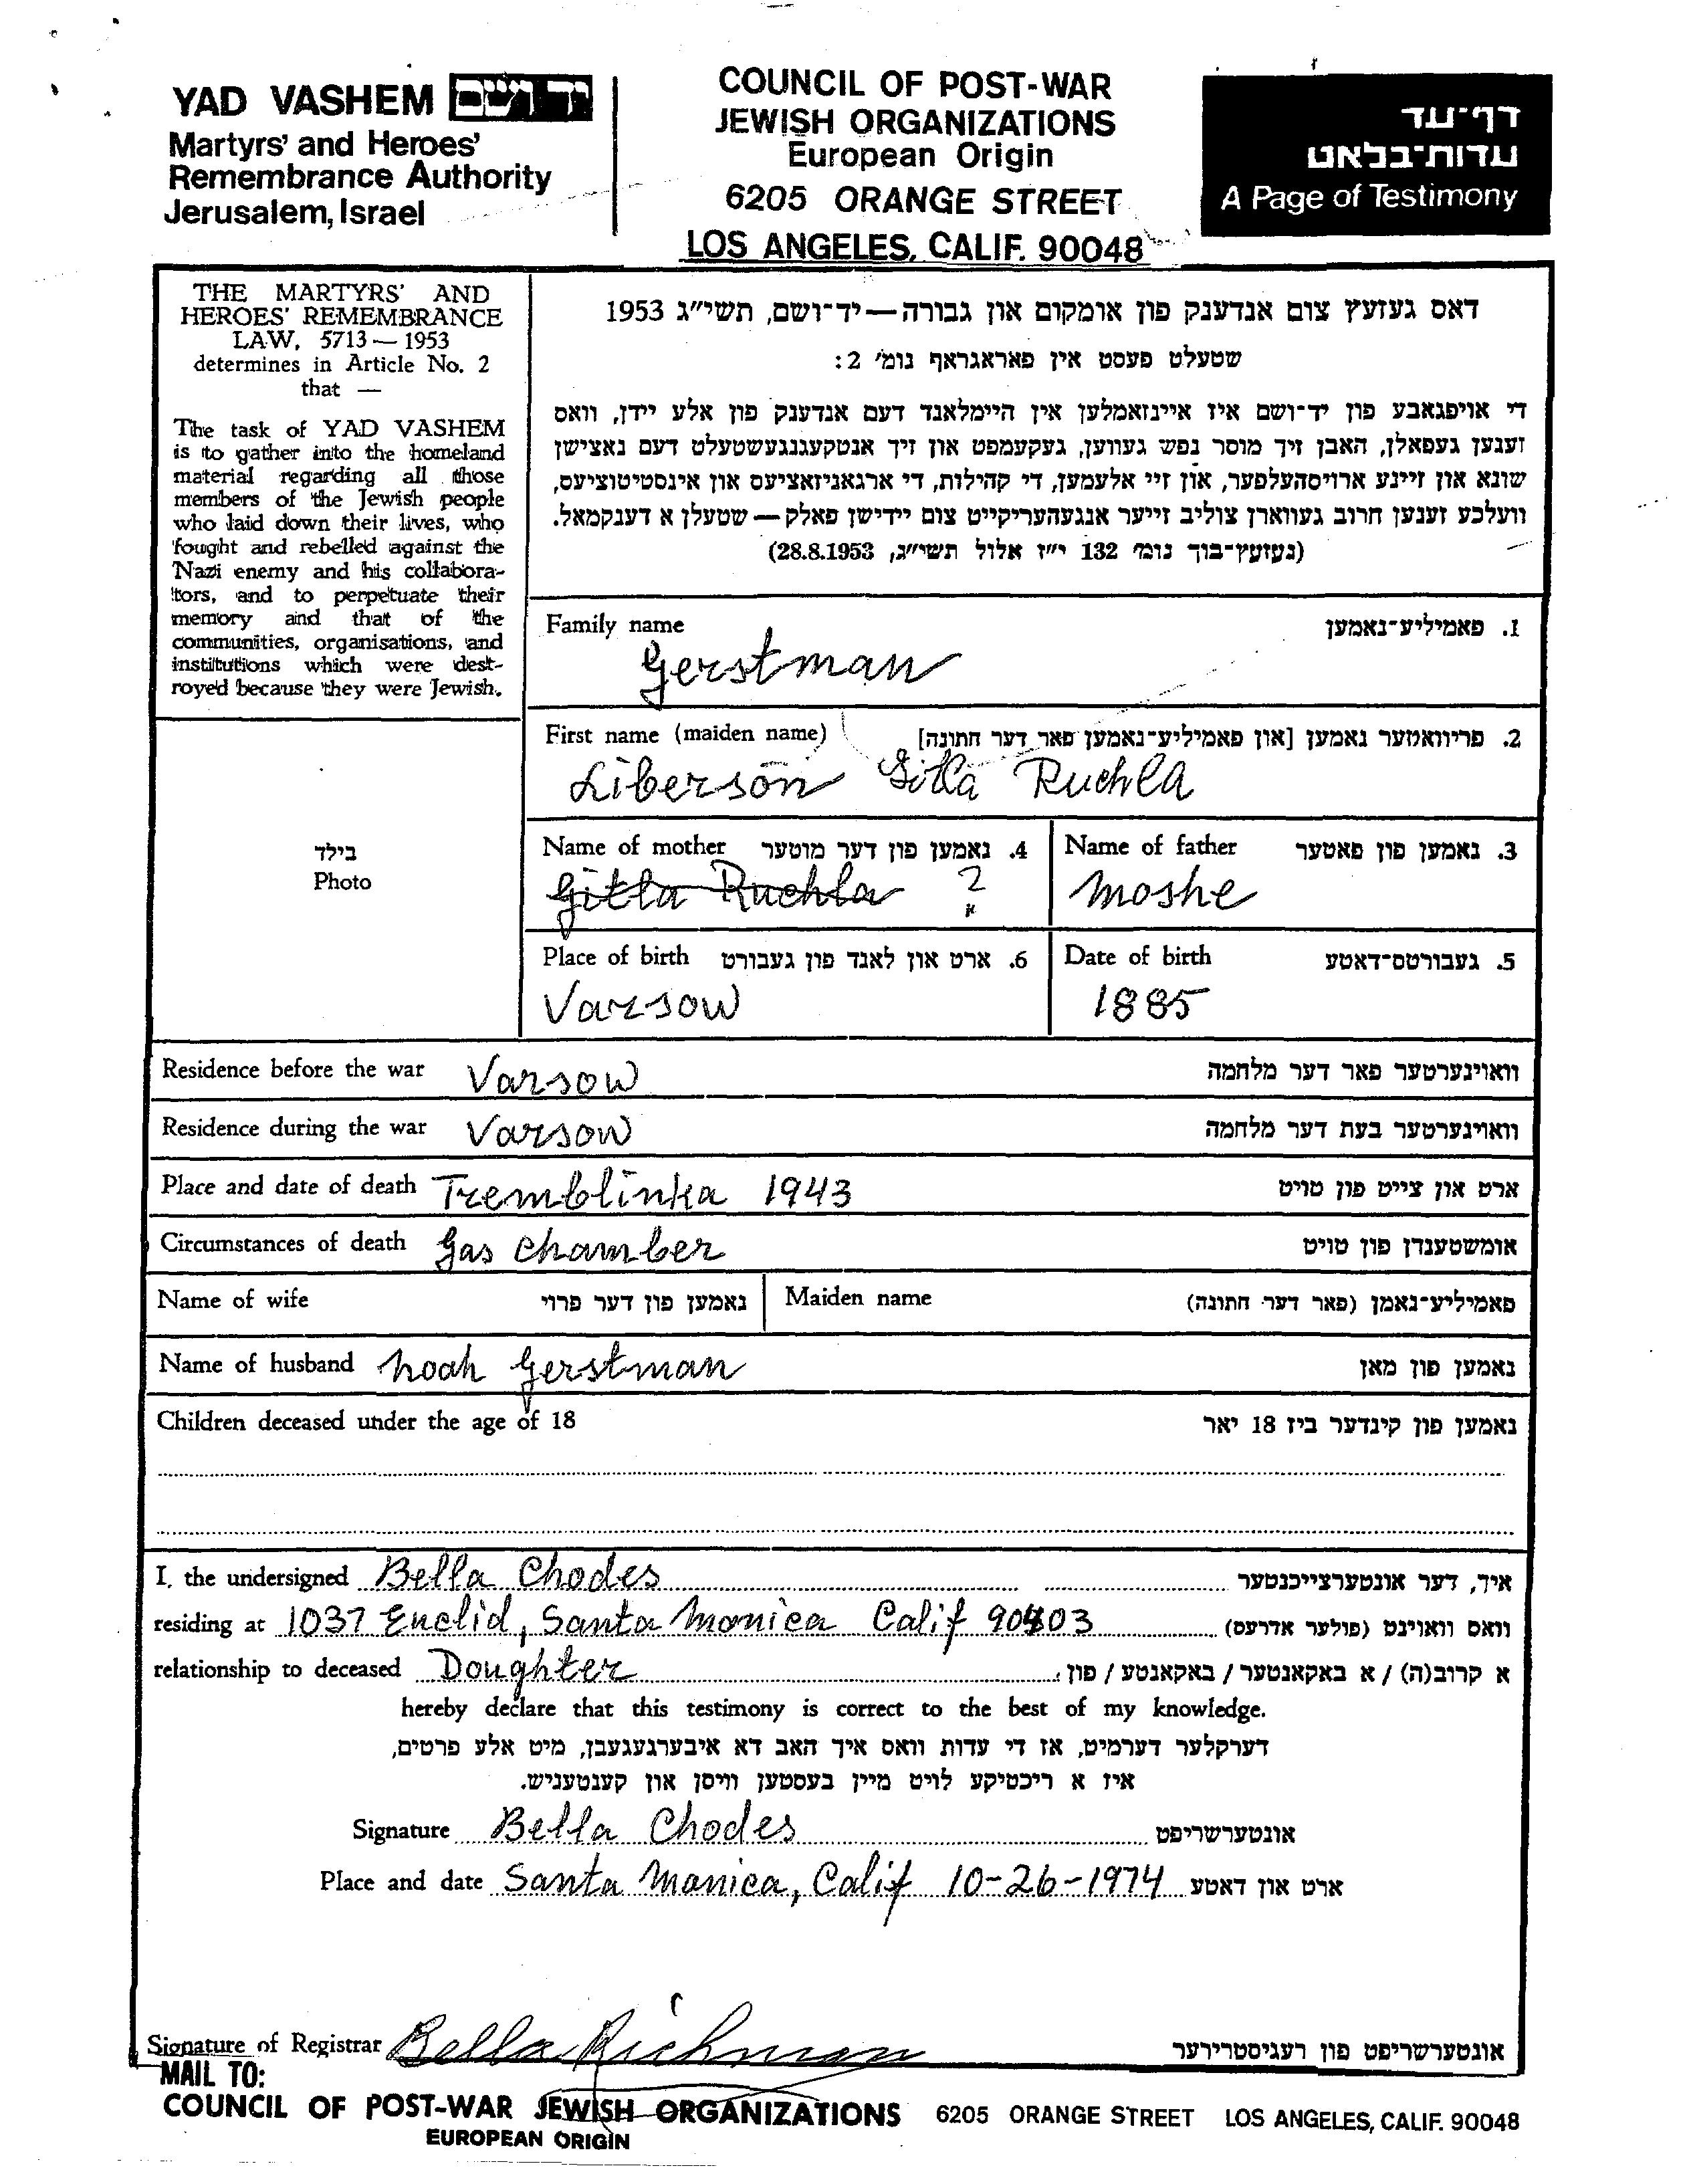 YAD VASHEM יד ושם
Martyrs' and Heroes'
Remembrance Authority
Jerusalem, Israel
COUNCIL OF POST-WAR
JEWISH ORGANIZATIONS
European Origin
6205 ORANGE STREET
LOS ANGELES, CALIF. 90048
דף־עד
עדות־בלאט
A Page of Testimony
THE MARTYRS' AND
HEROES' REMEMBRANCE
LAW, 5713 — 1953
determines in Article No. 2
that —
The task of YAD VASHEM
is to gather into the homeland
material regarding all those
members of the Jewish people
who laid down their lives, who
fought and rebelled against the
Nazi enemy and his collabora-
tors, and to perpetuate their
memory and that of the
communities, organisations, and
institutions which were dest-
royed because they were Jewish.
דאס געזעץ צום אנדענק פון אומקום און גבורה — יד־ושם, תשי״ג 1953
שטעלט פעסט אין פאראגראף נומ׳ 2:
די אויפגאבע פון יד־ושם איז איינזאמלען אין היימלאנד דעם אנדענק פון אלע יידן, וואס
זענען געפאלן, האבן זיך מוסר נפש געווען, געקעמפט און זיך אנטקעגנגעשטעלט דעם נאצישן
שונא און זיינע ארויסהעלפער, און זיי אלעמען, די קהילות, די ארגאניזאציעס און אינסטיטוציעס,
וועלכע זענען חרוב געווארן צוליב זייער אנגעהעריקייט צום יידישן פאלק — שטעלן א דענקמאל.
(געזעץ־בוך נומ׳ 132 י״ז אלול תשי״ג, 28.8.1953)
Family name 1. פאמיליע־נאמען
Gerstman
First name (maiden name) 2. פריוואטער נאמען [און פאמיליע־נאמען פאר דער חתונה]
Liberson Gitla Ruchla
בילד
Photo
Name of mother 4. נאמען פון דער מוטער
Gitla Ruchla ?
Name of father 3. נאמען פון פאטער
Moshe
Place of birth 6. ארט און לאנד פון געבורט
Varsow
Date of birth 5. געבורטס־דאטע
1885
Residence before the war Varsow וואוינערטער פאר דער מלחמה
Residence during the war Varsow וואוינערטער בעת דער מלחמה
Place and date of death Tremblinka 1943 ארט און צייט פון טויט
Circumstances of death Gas Chamber אומשטענדן פון טויט
Name of wife נאמען פון דער פרוי Maiden name פאמיליע־נאמן (פאר דער חתונה)
Name of husband Noah Gerstman נאמען פון מאן
Children deceased under the age of 18 נאמען פון קינדער ביז 18 יאר
I, the undersigned Bella Chodes איך, דער אונטערצייכנטער
residing at 1037 Euclid, Santa Monica Calif 90403 וואס וואוינט (פולער אדרעס)
relationship to deceased Doughter א קרוב(ה) / א באקאנטער / באקאנטע / פון
hereby declare that this testimony is correct to the best of my knowledge.
דערקלער דערמיט, אז די עדות וואס איך האב דא איבערגעגעבן, מיט אלע פרטים,
איז א ריכטיקע לויט מיין בעסטען וויסן און קענטעניש.
Signature Bella Chodes אונטערשריפט
Place and date Santa Monica, Calif 10-26-1974 ארט און דאטע
Signature of Registrar Bella Richman אונטערשריפט פון רעגיסטרירער
MAIL TO:
COUNCIL OF POST-WAR JEWISH ORGANIZATIONS 6205 ORANGE STREET LOS ANGELES, CALIF. 90048
EUROPEAN ORIGIN